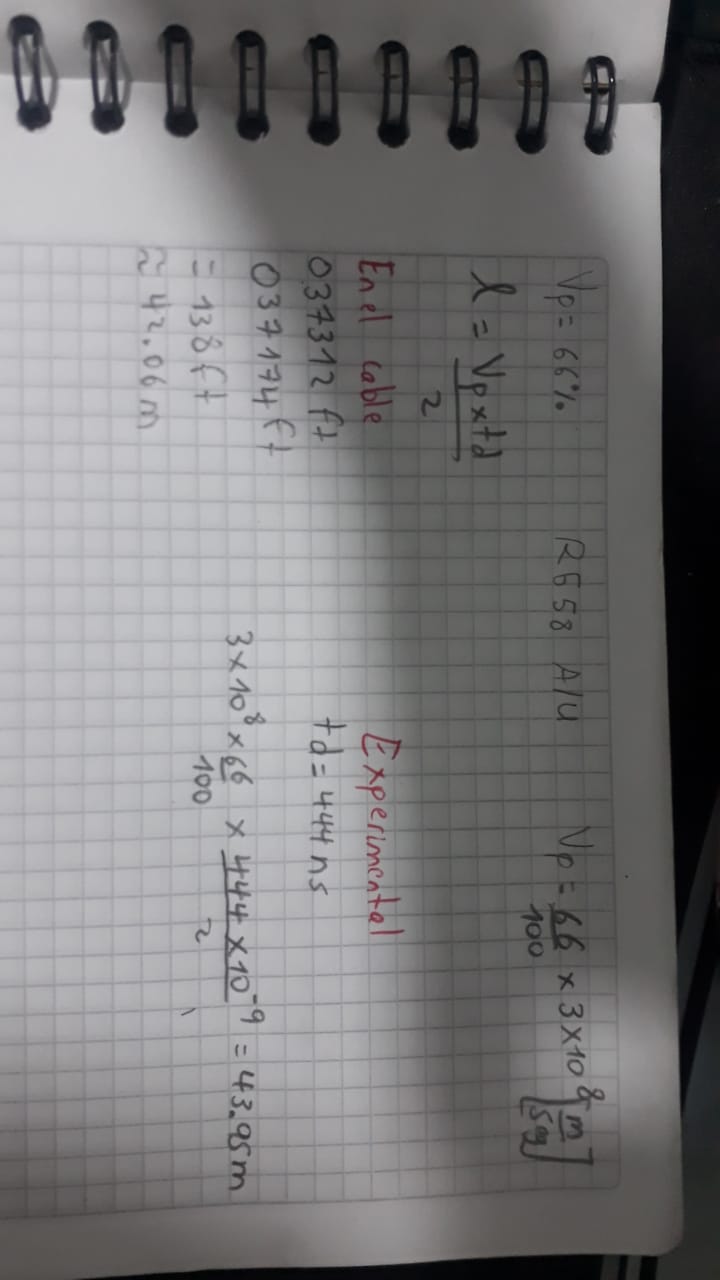 Vp = 66% RG58 A/U Vp = 66/100 x 3x10^8 [m/seg]
l = Vp x td / 2
En el cable
037312 ft
037174 ft
= 138 ft
≈ 42.06 m
Experimental
td = 444 ns
3x10^8 x 66/100 x 444 x10^-9 / 2 = 43.95 m